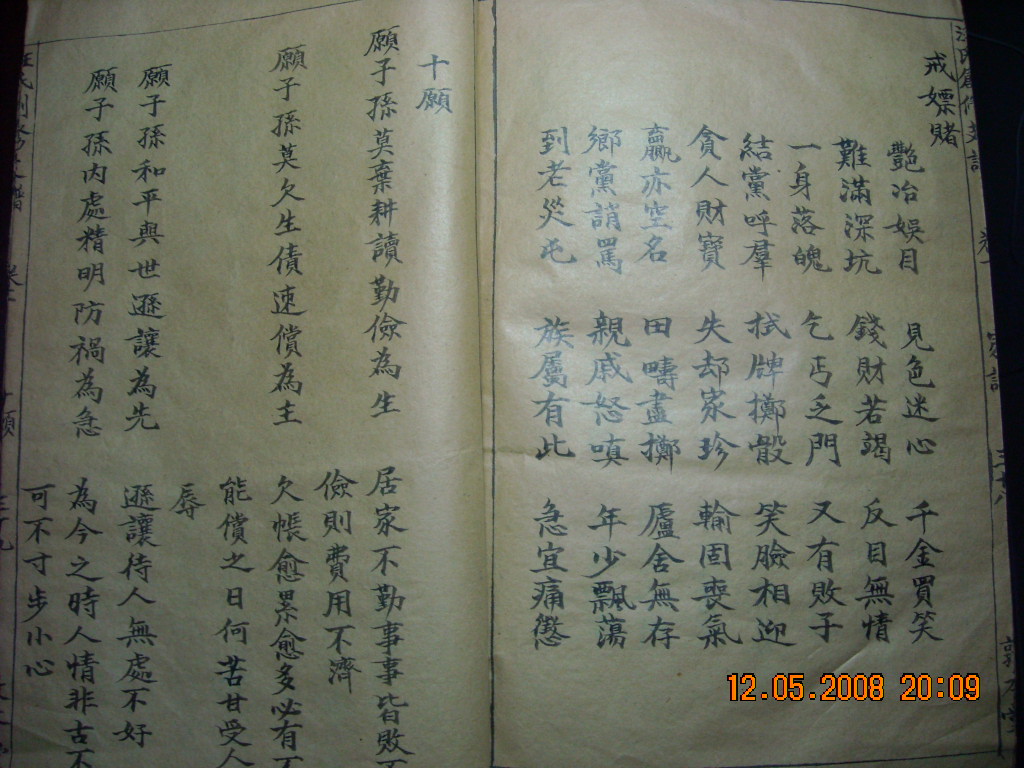 戒嫖賭
艷冶娛目 見色迷心 千金買笑
難滿深坑 錢財若竭 反目無情
一身落魄 乞丐乏門 又有敗子
結黨呼羣 拭牌擲骰 笑臉相迎
貪人財寶 失却家珍 輸固喪氣
贏亦空名 田疇盡擲 廬舍無存
鄉黨誚罵 親戚怒嗔 年少飄蕩
到老災屯 族屬有此 急宜痛懲
十願
願子孫莫棄耕讀勤儉為生 居家不勤事事皆敗不
儉則費用不濟
願子孫莫欠生債速償為主 欠帳愈累愈多必有不
能償之日何苦甘受人
辱
願子孫和平與世遜讓為先 遜讓待人無處不好
願子孫內處精明防禍為急 為今之時人情非古不
可不寸步小心
12.05.2008 20:09